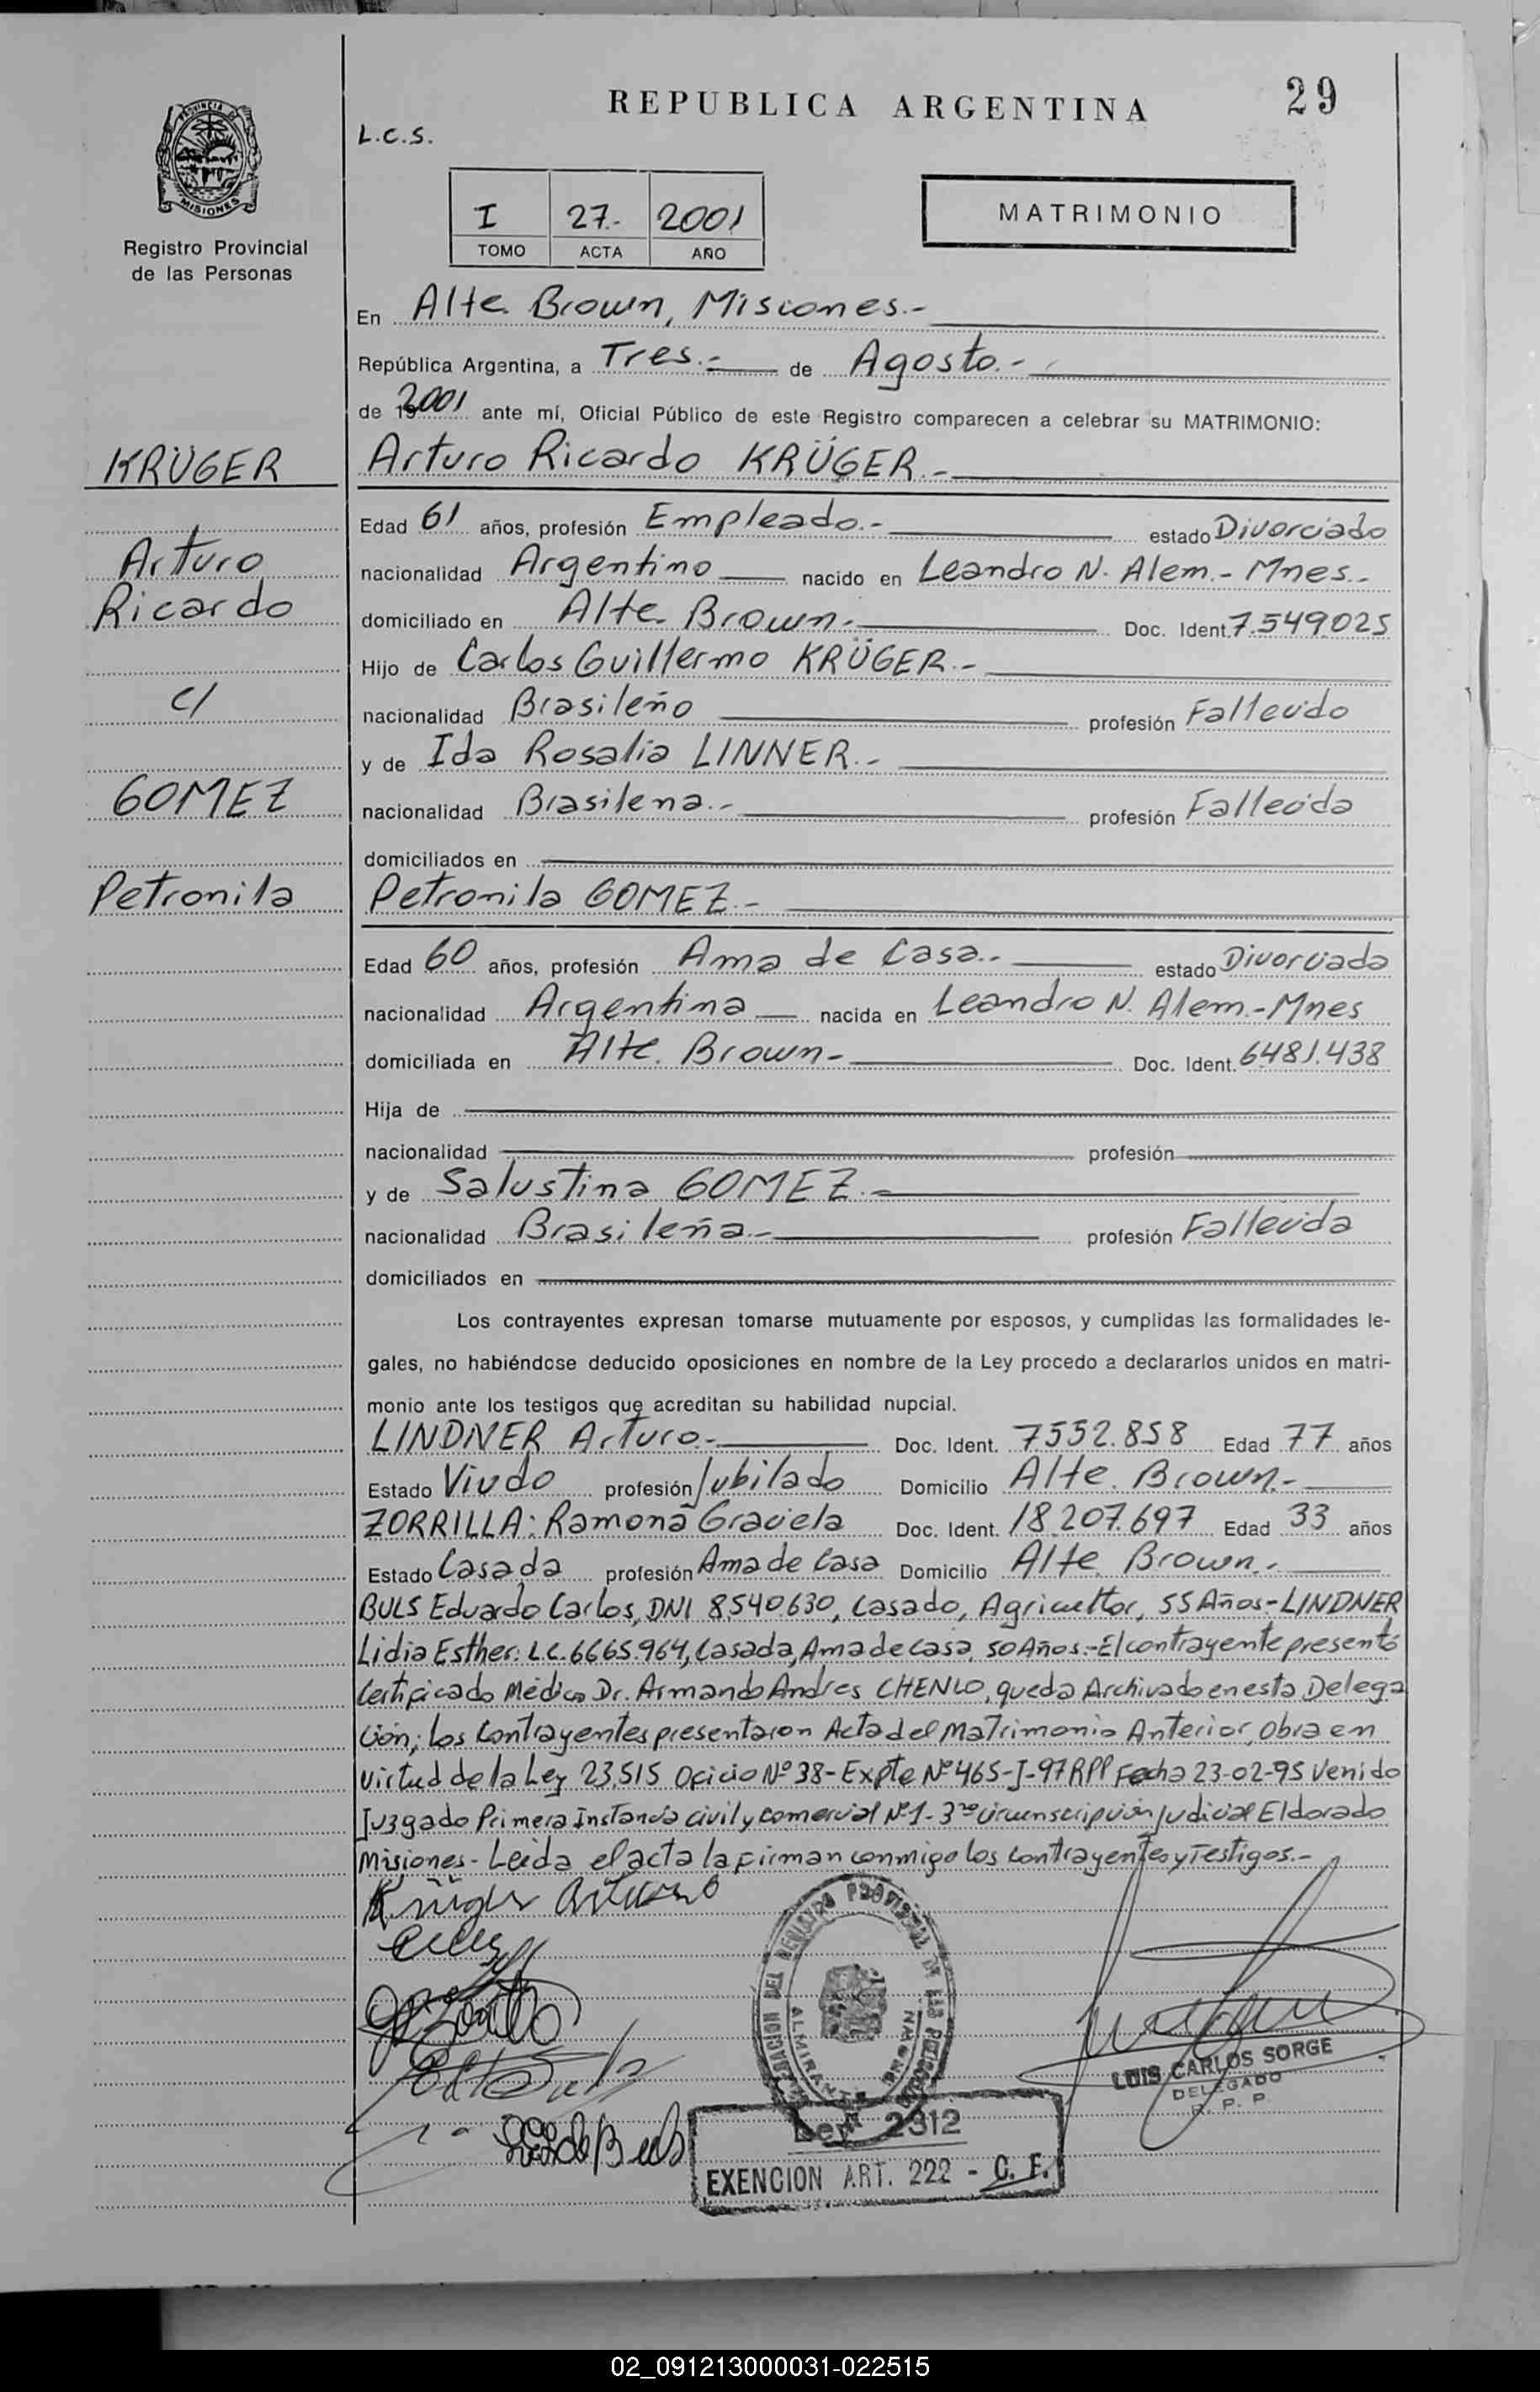 REPUBLICA ARGENTINA
29
L.C.S.
PROVINCIA DE
MISIONES
Registro Provincial
de las Personas
I 27.- 2001
TOMO ACTA AÑO
MATRIMONIO
En Alte. Brown, Misiones.-
República Argentina, a Tres.- de Agosto.-
de 2001 ante mí, Oficial Público de este Registro comparecen a celebrar su MATRIMONIO:
KRÜGER
Arturo Ricardo KRÜGER.-
Edad 61 años, profesión Empleado.- estado Divorciado
Arturo
nacionalidad Argentino nacido en Leandro N. Alem.- Mnes.-
Ricardo
domiciliado en Alte. Brown.- Doc. Ident. 7.549.025
Hijo de Carlos Guillermo KRÜGER.-
c/
nacionalidad Brasileño profesión Fallecido
y de Ida Rosalia LINNER.-
GOMEZ
nacionalidad Brasilena.- profesión Fallecida
domiciliados en
Petronila
Petronila GOMEZ.-
Edad 60 años, profesión Ama de Casa.- estado Divorciada
nacionalidad Argentina nacida en Leandro N. Alem.-Mnes
domiciliada en Alte. Brown- Doc. Ident. 6.481.438
Hija de
nacionalidad profesión
y de Salustina GOMEZ.-
nacionalidad Brasileña.- profesión Fallecida
domiciliados en
Los contrayentes expresan tomarse mutuamente por esposos, y cumplidas las formalidades le-
gales, no habiéndose deducido oposiciones en nombre de la Ley procedo a declararlos unidos en matri-
monio ante los testigos que acreditan su habilidad nupcial.
LINDNER Arturo.- Doc. Ident. 7552.858 Edad 77 años
Estado Viudo profesión Jubilado Domicilio Alte. Brown.-
ZORRILLA: Ramona Graciela Doc. Ident. 18.207.697 Edad 33 años
Estado Casada profesión Ama de Casa Domicilio Alte. Brown.-
BULS Eduardo Carlos, DNI 8.540.630, Casado, Agricultor, 55 Años.-LINDNER
Lidia Esther: L.C. 6665.964, Casada, Ama de Casa, 50 Años.-El contrayente presentó
Certificado Médico Dr. Armando Andres CHENLO, queda Archivado en esta Delega
ción; los Contrayentes presentaron Acta del Matrimonio Anterior, obra en
virtud de la Ley 23.515 Oficio Nº 38- Expte Nº 465-J-97 RPP Fecha 23-02-95 Venido
Juzgado Primera Instancia civil y comercial Nº1- 3ra circunscripción Judicial Eldorado
Misiones- Leída el acta la firman conmigo los contrayentes y Testigos.-
Krüger Arturo
DELEGACION DEL REGISTRO PROVINCIAL DE LAS PERSONAS
ALMIRANTE BROWN
LUIS CARLOS SORGE
DELEGADO
R. P. P.
Ley 2312
EXENCION ART. 222 - C. F.
02_091213000031-022515